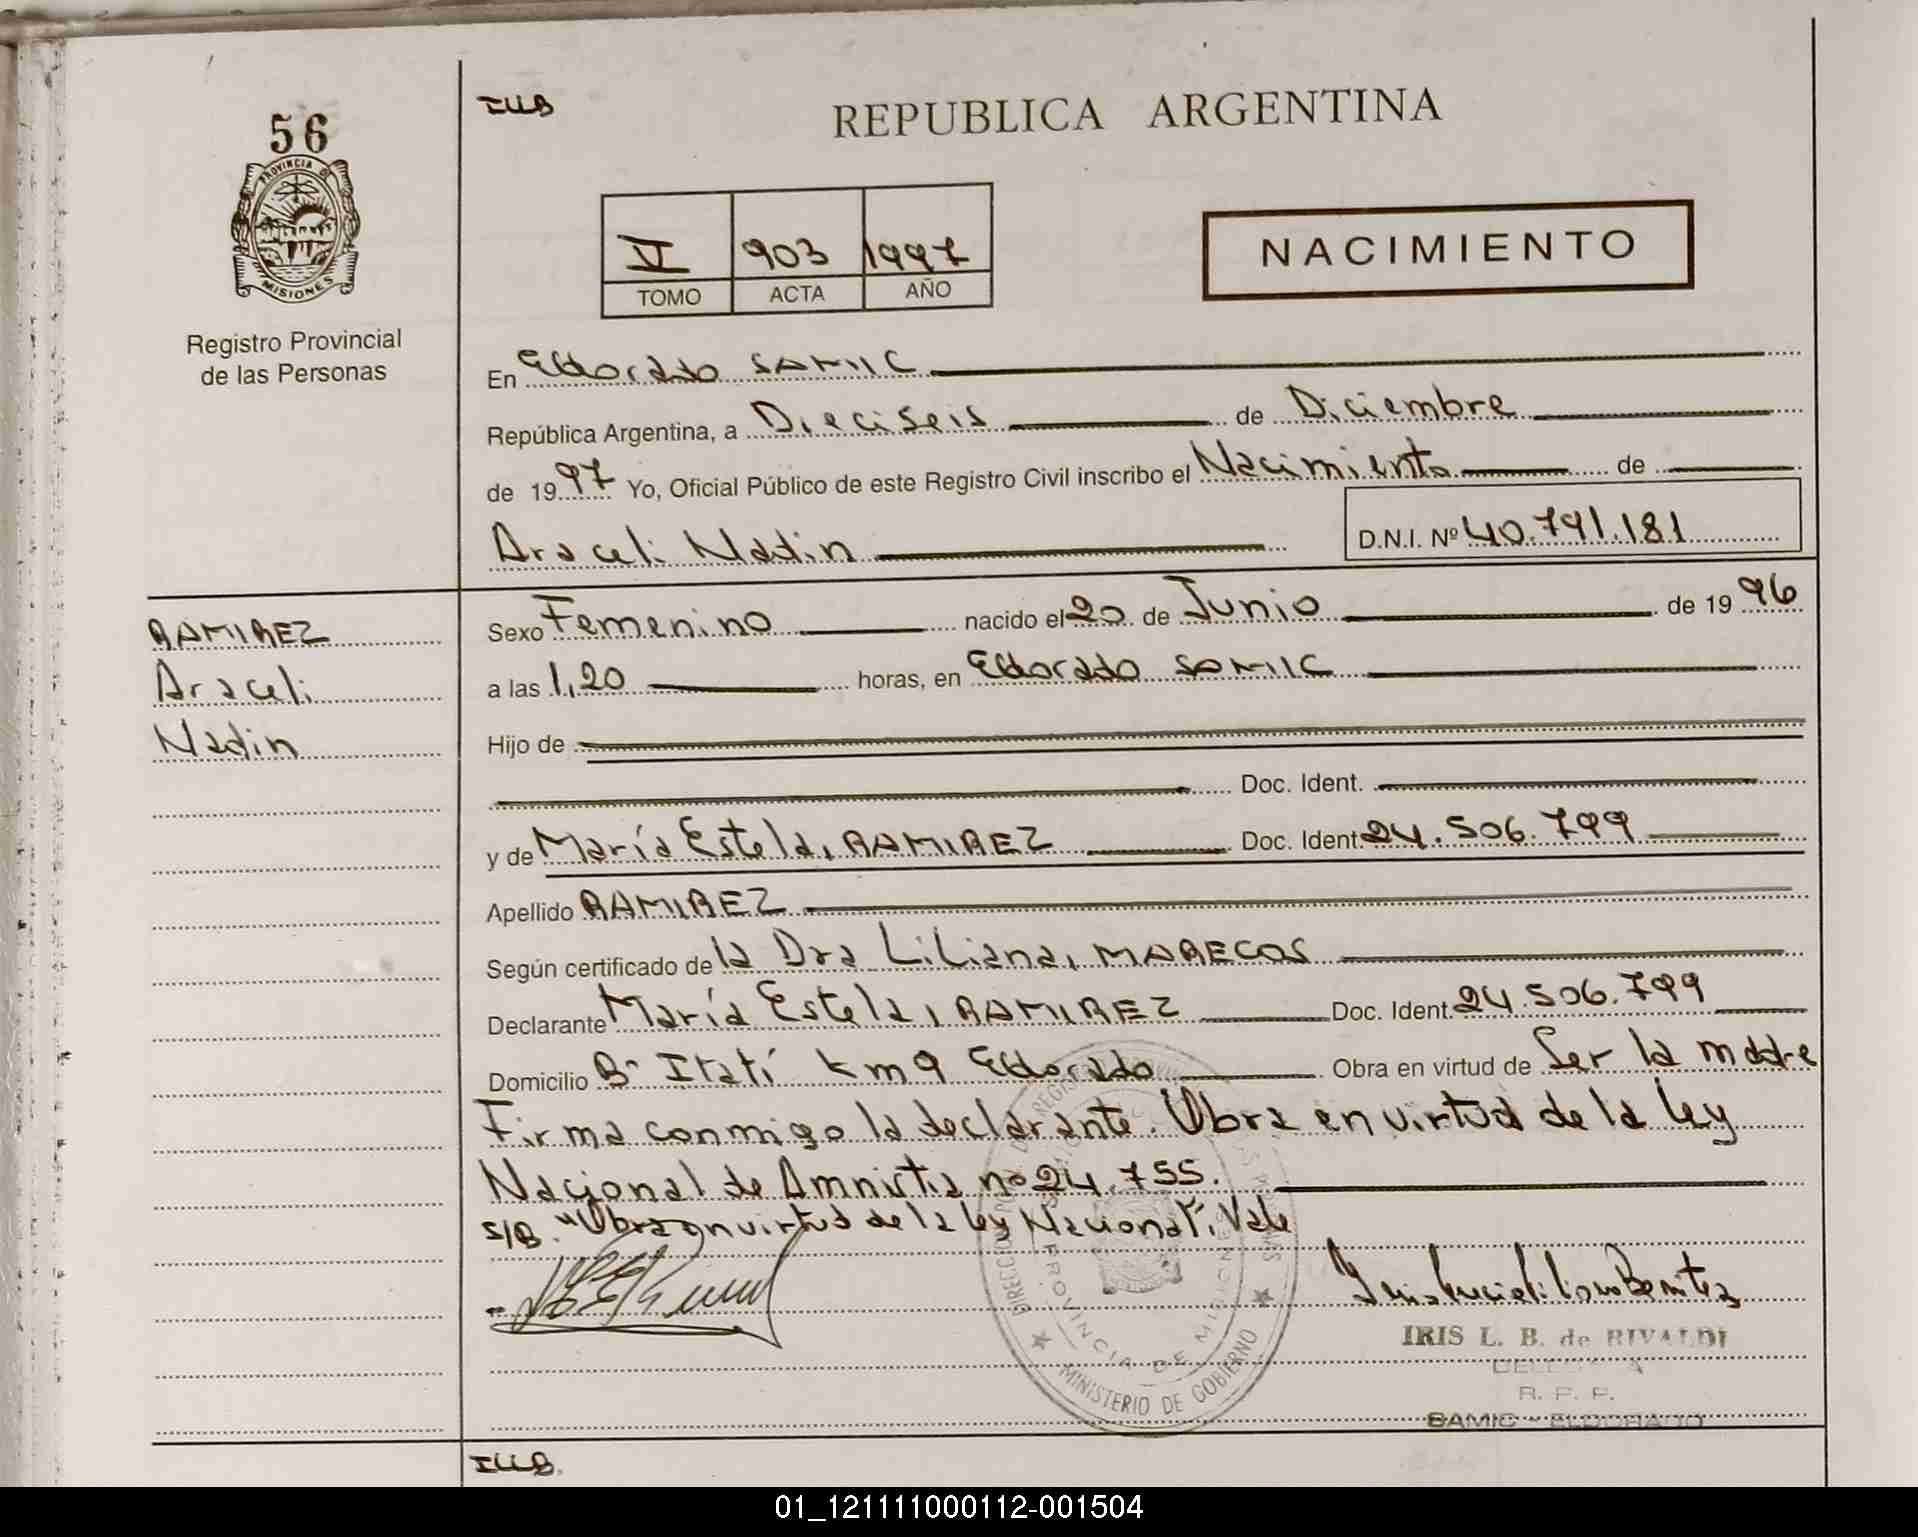 56
PROVINCIA DE MISIONES
Registro Provincial
de las Personas
ILLB
REPUBLICA ARGENTINA
V 903 1997
TOMO ACTA AÑO
NACIMIENTO
En Eldorado SAMIC
República Argentina, a Dieciseis de Diciembre
de 1997 Yo, Oficial Público de este Registro Civil inscribo el Nacimiento de
Araceli Nadin D.N.I. Nº 40.791.181
RAMIREZ
Araceli
Nadin
Sexo Femenino nacido el 20 de Junio de 1996
a las 1,20 horas, en Eldorado SAMIC
Hijo de
Doc. Ident.
y de María Estela, RAMIREZ Doc. Ident 24.506.799
Apellido RAMIREZ
Según certificado de la Dra Liliana, MARECOS
Declarante María Estela, RAMIREZ Doc. Ident. 24.506.799
Domicilio Bº Itatí km 9 Eldorado Obra en virtud de Ser la madre
Firma conmigo la declarante. Obra en virtud de la ley
Nacional de Amnistia nº 24.755.
S/B. "Obra en virtud de la ley Nacional", Vale
PROVINCIA DE MISIONES
MINISTERIO DE GOBIERNO
IRIS L. B. de RIVALDI
R. P. P.
SAMIC - ELDORADO
ILLB.
01_121111000112-001504